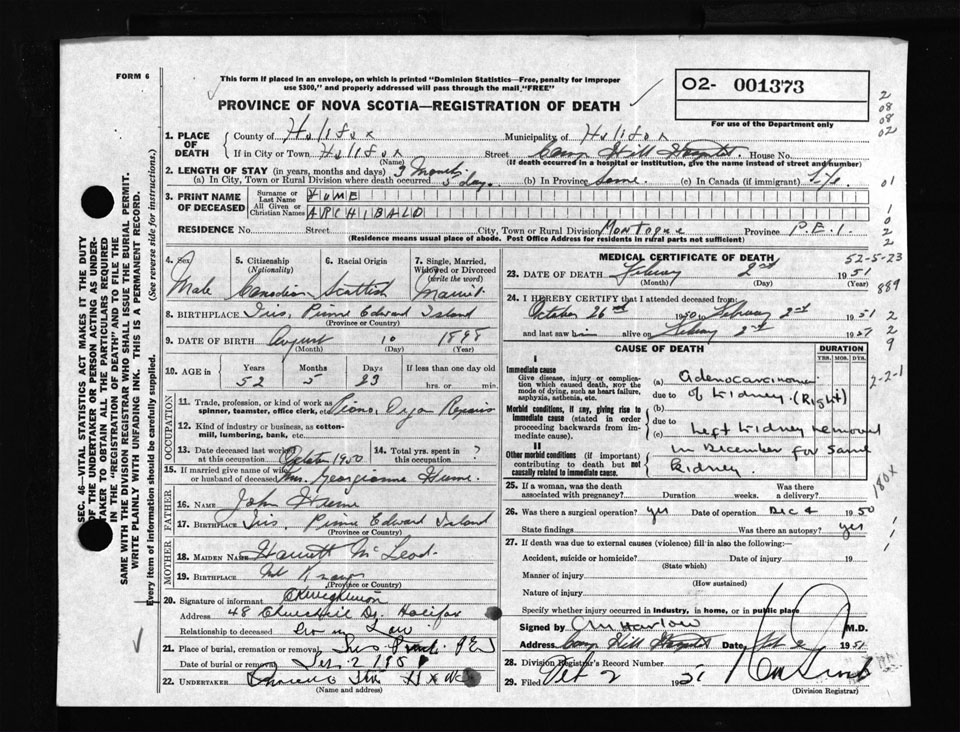 FORM 6
This form if placed in an envelope, on which is printed "Dominion Statistics—Free, penalty for improper
use $300," and properly addressed will pass through the mail "FREE"
PROVINCE OF NOVA SCOTIA—REGISTRATION OF DEATH
O2- 001373
For use of the Department only
1. PLACE OF DEATH
County of Halifax Municipality of Halifax
If in City or Town Halifax Street Camp Hill Hospital House No.
(Name) (If death occurred in a hospital or institution, give the name instead of street and number)
2. LENGTH OF STAY (in years, months and days) 3 Months
(a) In City, Town or Rural Division where death occurred days (b) In Province Same (c) In Canada (if immigrant) Life
3. PRINT NAME OF DECEASED
Surname or Last Name HUME
All Given or Christian Names ARCHIBALD
RESIDENCE No. Street City, Town or Rural Division Montague Province P.E.I.
(Residence means usual place of abode. Post Office Address for residents in rural parts not sufficient)
4. Sex Male
5. Citizenship (Nationality) Canadian
6. Racial Origin Scottish
7. Single, Married, Widowed or Divorced (write the word) Married
8. BIRTHPLACE Iris, Prince Edward Island
(Province or Country)
9. DATE OF BIRTH August 10 1898
(Month) (Day) (Year)
10. AGE in Years 52 Months 5 Days 23 If less than one day
hrs. or min.
OCCUPATION
11. Trade, profession, or kind of work as spinner, teamster, office clerk, etc. Piano, Organ Repairs
12. Kind of industry or business, as cotton-mill, lumbering, bank, etc.
13. Date deceased last worked at this occupation October 1950
14. Total yrs. spent in this occupation ?
15. If married give name of wife or husband of deceased Mrs. Georgianna Hume
FATHER
16. NAME John Hume
17. BIRTHPLACE Iris, Prince Edward Island
(Province or Country)
MOTHER
18. MAIDEN NAME Harriett McLeod
19. BIRTHPLACE Not Known
(Province or Country)
20. Signature of informant
Address 48 Churchill Dr. Halifax
Relationship to deceased Son in Law
21. Place of burial, cremation or removal, Iris PEI
Date of burial or removal Feb 2 1951
22. UNDERTAKER
(Name and address)
MEDICAL CERTIFICATE OF DEATH
52-5-23
23. DATE OF DEATH February 2nd 1951
(Month) (Day) (Year)
24. I HEREBY CERTIFY that I attended deceased from:
October 26th 1950 to February 2nd 1951
and last saw him alive on February 2nd 1951
CAUSE OF DEATH DURATION
YRS. MOS. DYS.
I
Immediate cause
Give disease, injury or complication which caused death, not the mode of dying, such as heart failure, asphyxia, asthenia, etc.
(a) Adenocarcinoma
due to of kidney. (Right)
Morbid conditions, if any, giving rise to immediate cause (stated in order proceeding backwards from immediate cause)
(b)
due to
(c) Left kidney removed
II
Other morbid conditions (if important) contributing to death but not causally related to immediate cause.
in December for same
kidney.
25. If a woman, was the death associated with pregnancy? Duration weeks. Was there a delivery?
26. Was there a surgical operation? yes Date of operation Dec 4 1950
State findings Was there an autopsy? yes
27. If death was due to external causes (violence) fill in also the following:—
Accident, suicide or homicide? Date of injury 19
(State which)
Manner of injury
(How sustained)
Nature of injury
Specify whether injury occurred in industry, in home, or in public place
Signed by CM Harlow M.D.
Address Camp Hill Hospital Date Feb 2 1951
28. Division Registrar's Record Number
29. Filed Feb 2 1951
(Division Registrar)
SEC. 46—VITAL STATISTICS ACT MAKES IT THE DUTY
OF THE UNDERTAKER OR PERSON ACTING AS UNDER-
TAKER TO OBTAIN ALL THE PARTICULARS REQUIRED
IN THE "REGISTRATION OF DEATH" AND TO FILE THE
SAME WITH THE DIVISION REGISTRAR WHO SHALL ISSUE THE BURIAL PERMIT.
WRITE PLAINLY WITH UNFADING INK. THIS IS A PERMANENT RECORD.
Every item of information should be carefully supplied. (See reverse side for instructions.)
889
2-2-1
180X